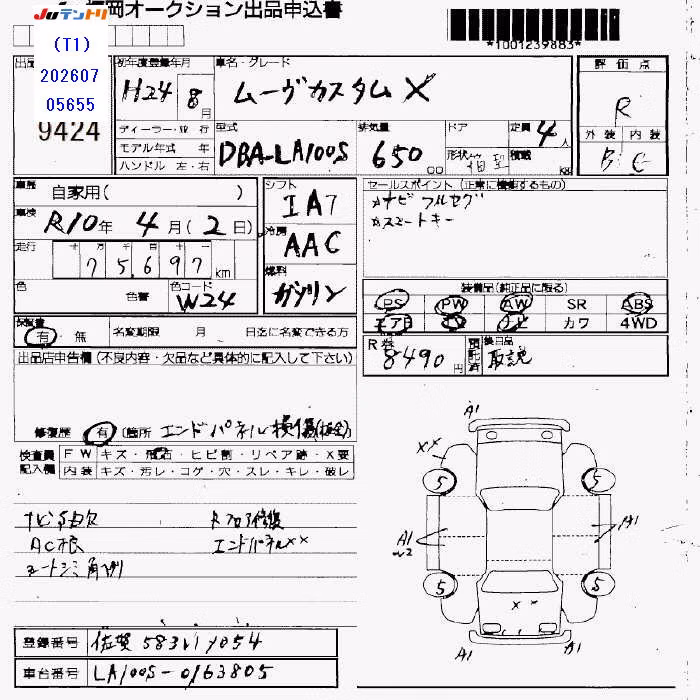 JUテントリ
福岡オークション出品申込書
*1001239883*
(T1)
202607
05655
9424
初年度登録年月
H24年8月
車名・グレード
ムーヴカスタム X
評価点
R
外装 内装
B C
ディーラー・並行
モデル年式 年
ハンドル 左・右
型式
DBA-LA100S
排気量
650 CC
ドア
形状
定員 4人
積載 kg
車歴 自家用( )
車検 R10年4月(2日)
走行 十万千百十
75,697 km
色
色替
色コード W24
シフト IAT
冷房 AAC
燃料 ガソリン
セールスポイント(正常に機能するもの)
ナビ フルセグ
スマートキー
装備品(純正品に限る)
PS PW AW SR ABS
エアB ナビ カワ 4WD
保証書
有・無 名変期限 月 日迄に名変できる方
R券 8490円
預託済
後日品 取説
出品店申告欄(不良内容・欠品など具体的に記入して下さい)
修復歴 有(箇所 エンドパネル損傷(板金)
検査員記入欄
FW キズ・飛石・ヒビ割・リペア跡・X要
内装 キズ・汚レ・コゲ・穴・スレ・キレ・破レ
Rフロア修復
AC根
エンドパネルXX
シートシミ
A1 A1
XX
5 5
A1 A1
5 5
XX
A1 A1
登録番号 佐賀583
車台番号 LA100S-0163805